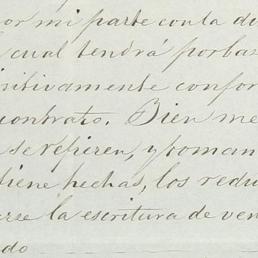 por mi parte con la de
cual tendrá por bas
sitivamente confor
contrato. Bien me
se repieren, y toman
tiene hechas, los redu
arse la escritura de ven
do